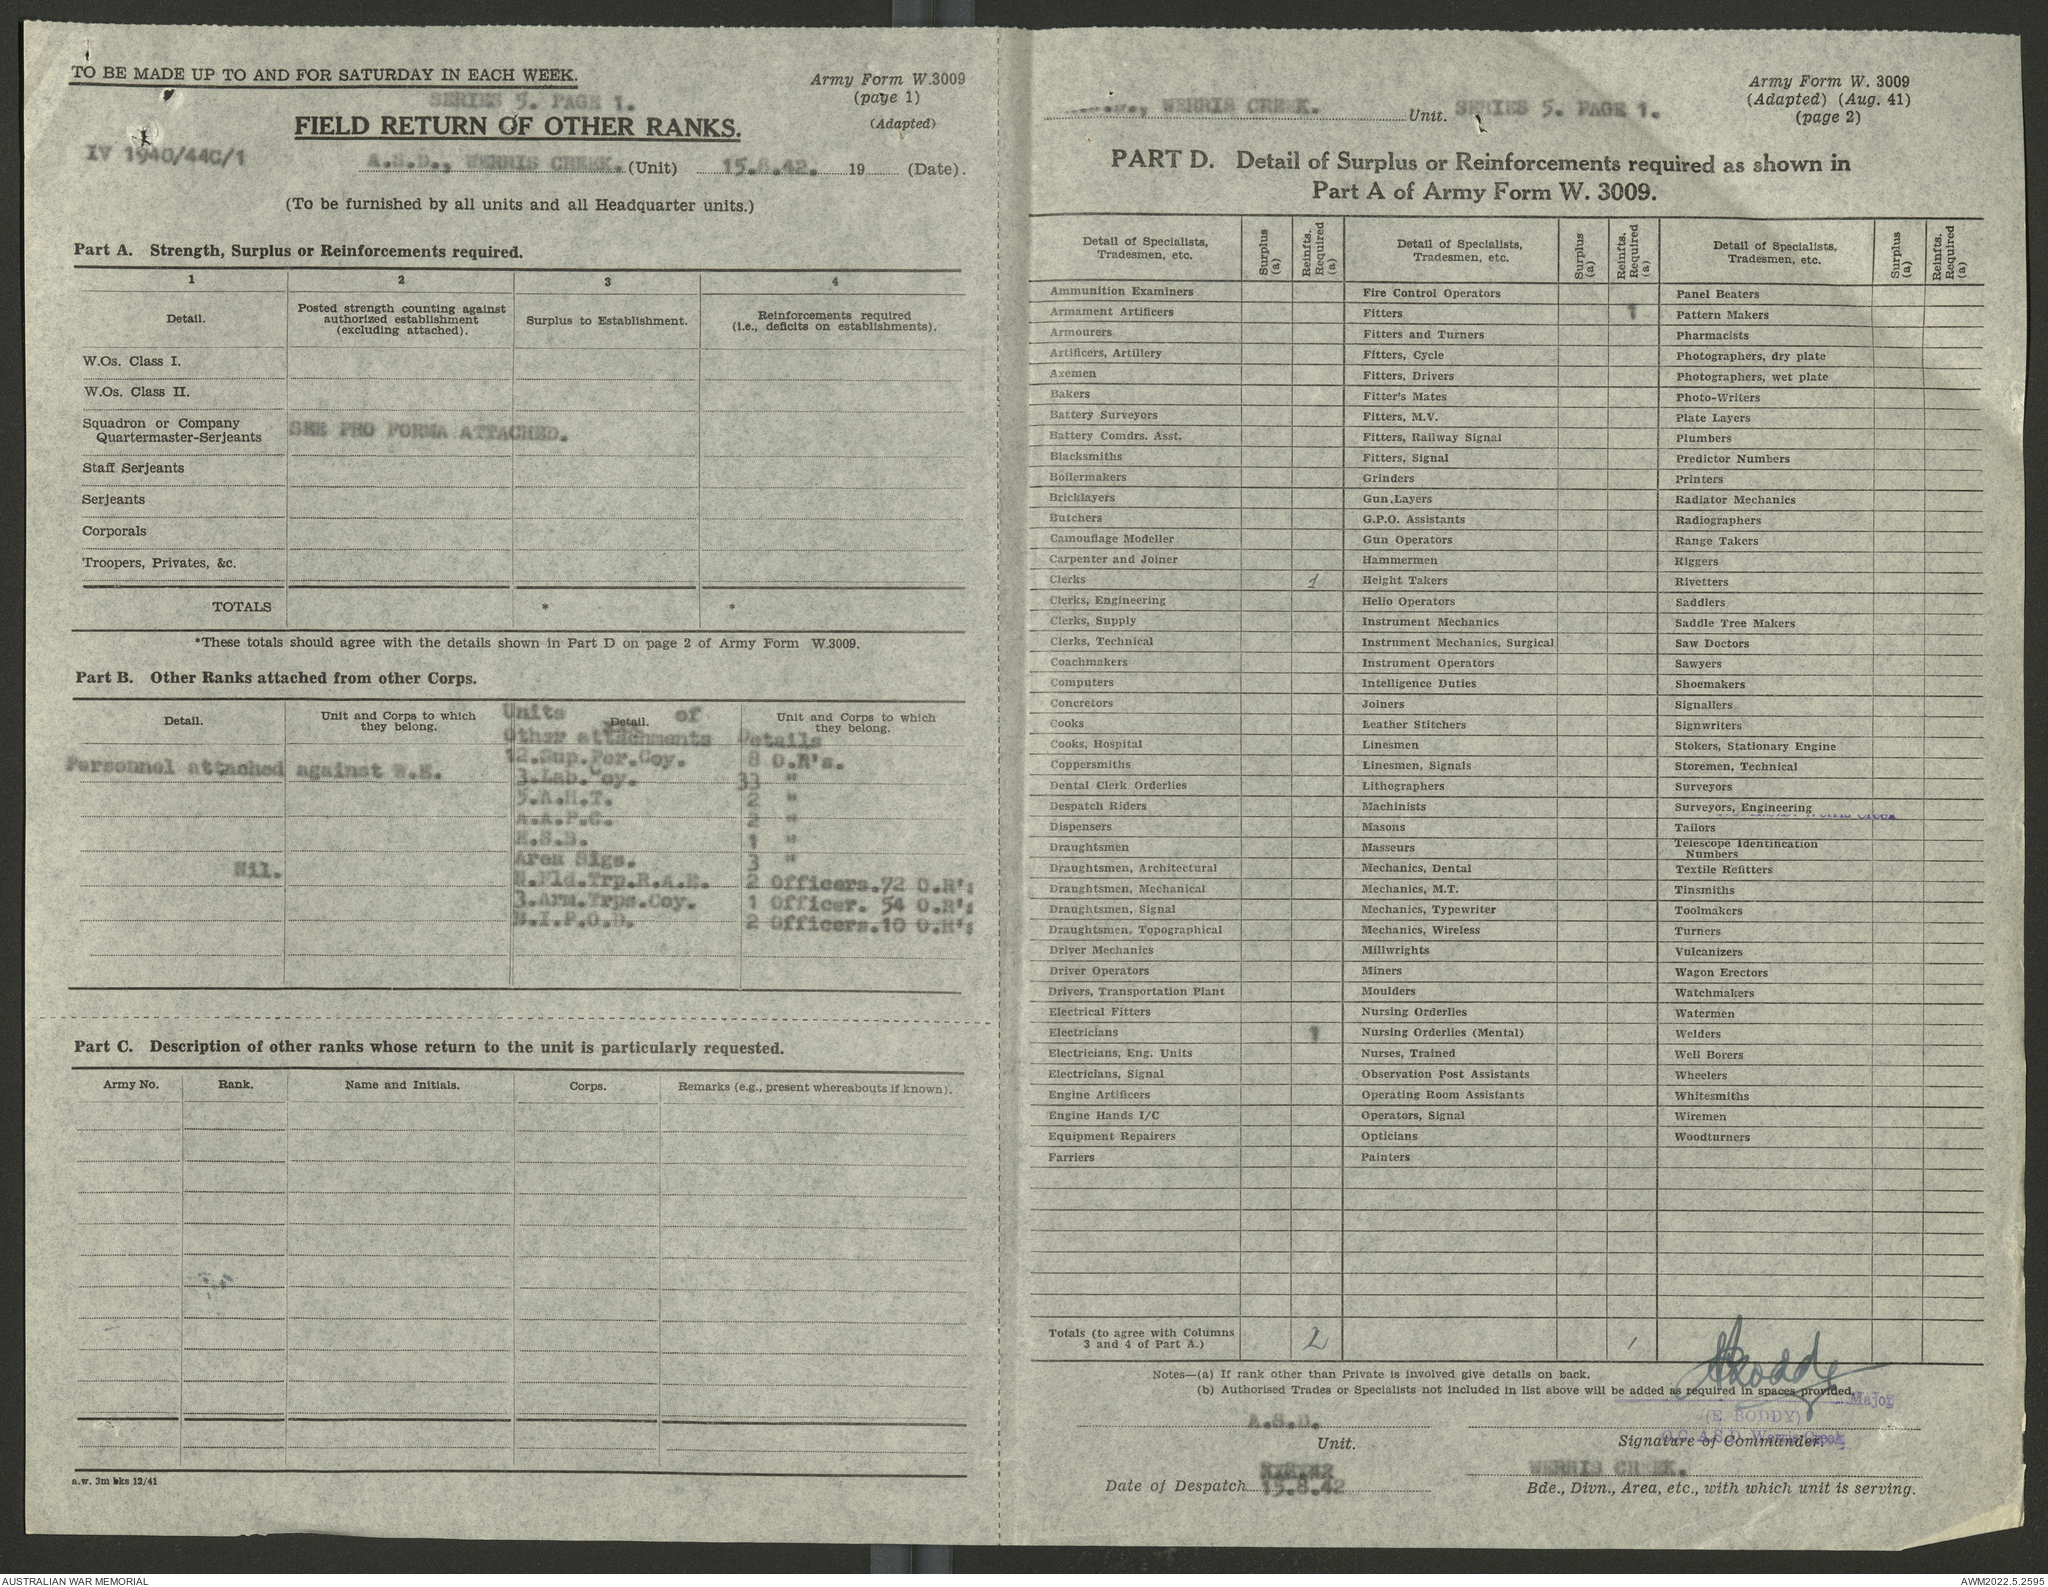 TO BE MADE UP TO AND FOR SATURDAY IN EACH WEEK.
Army Form W.3009
(page 1)
(Adapted)
SERIES 5. PAGE 1.
FIELD RETURN OF OTHER RANKS.
IV 1940/44C/1
A.S.D., WERRIS CREEK. (Unit) 15.8.42. 19 (Date).
(To be furnished by all units and all Headquarter units.)
Part A. Strength, Surplus or Reinforcements required.
1 2 3 4
Detail. Posted strength counting against authorized establishment (excluding attached). Surplus to Establishment. Reinforcements required (i.e., deficits on establishments).
W.Os. Class I.
W.Os. Class II.
Squadron or Company
Quartermaster-Serjeants SEE PRO FORMA ATTACHED.
Staff Serjeants
Serjeants
Corporals
Troopers, Privates, &c.
TOTALS * *
*These totals should agree with the details shown in Part D on page 2 of Army Form W.3009.
Part B. Other Ranks attached from other Corps.
Detail. Unit and Corps to which they belong. Detail. Unit and Corps to which they belong.
Units of
Other attachments Details
12.Sup.Per.Coy. 8 O.R's.
Personnel attached against W.E.
3.Lab.Coy. 33 "
5.A.H.T. 2 "
A.A.P.C. 2 "
E.S.B. 1 "
Area Sigs. 3 "
Nil.
N.Fld.Trp.R.A.E. 2 Officers.72 O.R's
3.Arm.Trps.Coy. 1 Officer. 54 O.R's
B.I.P.O.D. 2 Officers.10 O.R's
Part C. Description of other ranks whose return to the unit is particularly requested.
Army No. Rank. Name and Initials. Corps. Remarks (e.g., present whereabouts if known).
a.w. 3m bks 12/41
Army Form W. 3009
(Adapted) (Aug. 41)
(page 2)
WERRIS CREEK. Unit. SERIES 5. PAGE 1.
PART D. Detail of Surplus or Reinforcements required as shown in
Part A of Army Form W. 3009.
Detail of Specialists, Tradesmen, etc. Surplus (a) Reinfts. Required (a) Detail of Specialists, Tradesmen, etc. Surplus (a) Reinfts. Required (a) Detail of Specialists, Tradesmen, etc. Surplus (a) Reinfts. Required (a)
Ammunition Examiners Fire Control Operators Panel Beaters
Armament Artificers Fitters 1 Pattern Makers
Armourers Fitters and Turners Pharmacists
Artificers, Artillery Fitters, Cycle Photographers, dry plate
Axemen Fitters, Drivers Photographers, wet plate
Bakers Fitter's Mates Photo-Writers
Battery Surveyors Fitters, M.V. Plate Layers
Battery Comdrs. Asst. Fitters, Railway Signal Plumbers
Blacksmiths Fitters, Signal Predictor Numbers
Boilermakers Grinders Printers
Bricklayers Gun Layers Radiator Mechanics
Butchers G.P.O. Assistants Radiographers
Camouflage Modeller Gun Operators Range Takers
Carpenter and Joiner Hammermen Riggers
Clerks 1 Height Takers Rivetters
Clerks, Engineering Helio Operators Saddlers
Clerks, Supply Instrument Mechanics Saddle Tree Makers
Clerks, Technical Instrument Mechanics, Surgical Saw Doctors
Coachmakers Instrument Operators Sawyers
Computers Intelligence Duties Shoemakers
Concretors Joiners Signallers
Cooks Leather Stitchers Signwriters
Cooks, Hospital Linesmen Stokers, Stationary Engine
Coppersmiths Linesmen, Signals Storemen, Technical
Dental Clerk Orderlies Lithographers Surveyors
Despatch Riders Machinists Surveyors, Engineering
Dispensers Masons Tailors
Draughtsmen Masseurs Telescope Identification Numbers
Draughtsmen, Architectural Mechanics, Dental Textile Refitters
Draughtsmen, Mechanical Mechanics, M.T. Tinsmiths
Draughtsmen, Signal Mechanics, Typewriter Toolmakers
Draughtsmen, Topographical Mechanics, Wireless Turners
Driver Mechanics Millwrights Vulcanizers
Driver Operators Miners Wagon Erectors
Drivers, Transportation Plant Moulders Watchmakers
Electrical Fitters Nursing Orderlies Watermen
Electricians 1 Nursing Orderlies (Mental) Welders
Electricians, Eng. Units Nurses, Trained Well Borers
Electricians, Signal Observation Post Assistants Wheelers
Engine Artificers Operating Room Assistants Whitesmiths
Engine Hands I/C Operators, Signal Wiremen
Equipment Repairers Opticians Woodturners
Farriers Painters
Totals (to agree with Columns 3 and 4 of Part A.) 2 1
Notes—(a) If rank other than Private is involved give details on back.
(b) Authorised Trades or Specialists not included in list above will be added as required in spaces provided.
Major
(E. BODDY)
O.C. A.S.D. Werris Creek
A.S.D.
Unit. Signature of Commander.
WERRIS CREEK.
Date of Despatch 15.8.42 Bde., Divn., Area, etc., with which unit is serving.
AUSTRALIAN WAR MEMORIAL AWM2022.5.2595